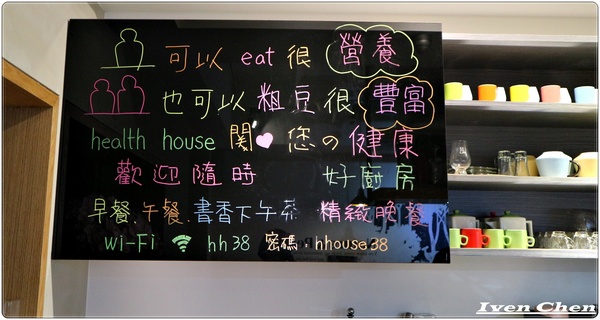 可以 eat 很 營養
也可以 粗豆 很 豐富
health house 関 您の 健康
歡迎隨時 好廚房
早餐.午餐.書香下午茶 精緻晚餐
Wi-Fi hh38 密碼:hhouse38
Iven Chen